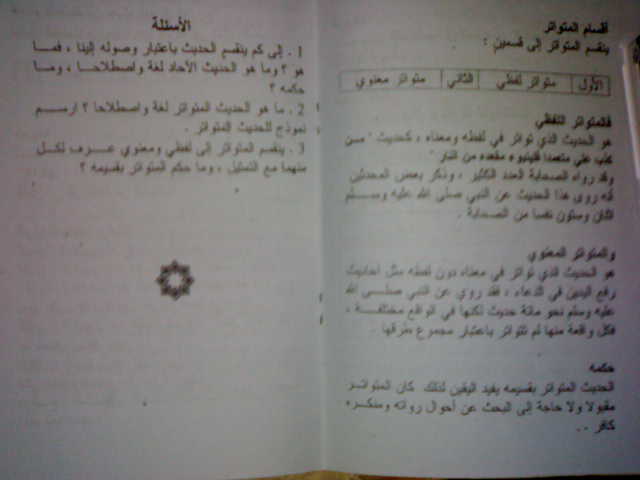 أقسام المتواتر
ينقسم المتواتر إلى قسمين :
الأول | متواتر لفظي | الثاني | متواتر معنوي
فالمتواتر اللفظي
هو الحديث الذي تواتر في لفظه ومعناه ، كحديث " من
كذب علي متعمدا فليتبوء مقعده من النار "
وقد رواه الصحابة العدد الكثير ، وذكر بعض المحدثين
أنه روى هذا الحديث عن النبي صلى الله عليه وسلم
اثنان وستون نفسا من الصحابة .
والمتواتر المعنوي
هو الحديث الذي تواتر في معناه دون لفظه مثل أحاديث
رفع اليدين في الدعاء ، فقد روي عن النبي صلى الله
عليه وسلم نحو مائة حديث لكنها في الواقع مختلفة ،
فكل واقعة منها لم تتواتر باعتبار مجموع طرقها .
حكمه
الحديث المتواتر بقسيمه يفيد اليقين لذلك كان المتواتر
مقبولا ولا حاجة إلى البحث عن أحوال رواته ومنكره
كافر . .
الأسئلة
1 . إلى كم ينقسم الحديث باعتبار وصوله إلينا ، فما
هو ؟ وما هو الحديث الآحاد لغة واصطلاحا ، وما
حكمه ؟
2 . ما هو الحديث المتواتر لغة واصطلاحا ؟ ارسم
نموذج للحديث المتواتر .
3 . ينقسم المتواتر إلى لفظي ومعنوي عرف لكل
منهما مع التمثيل ، وما حكم المتواتر بقسيمه ؟